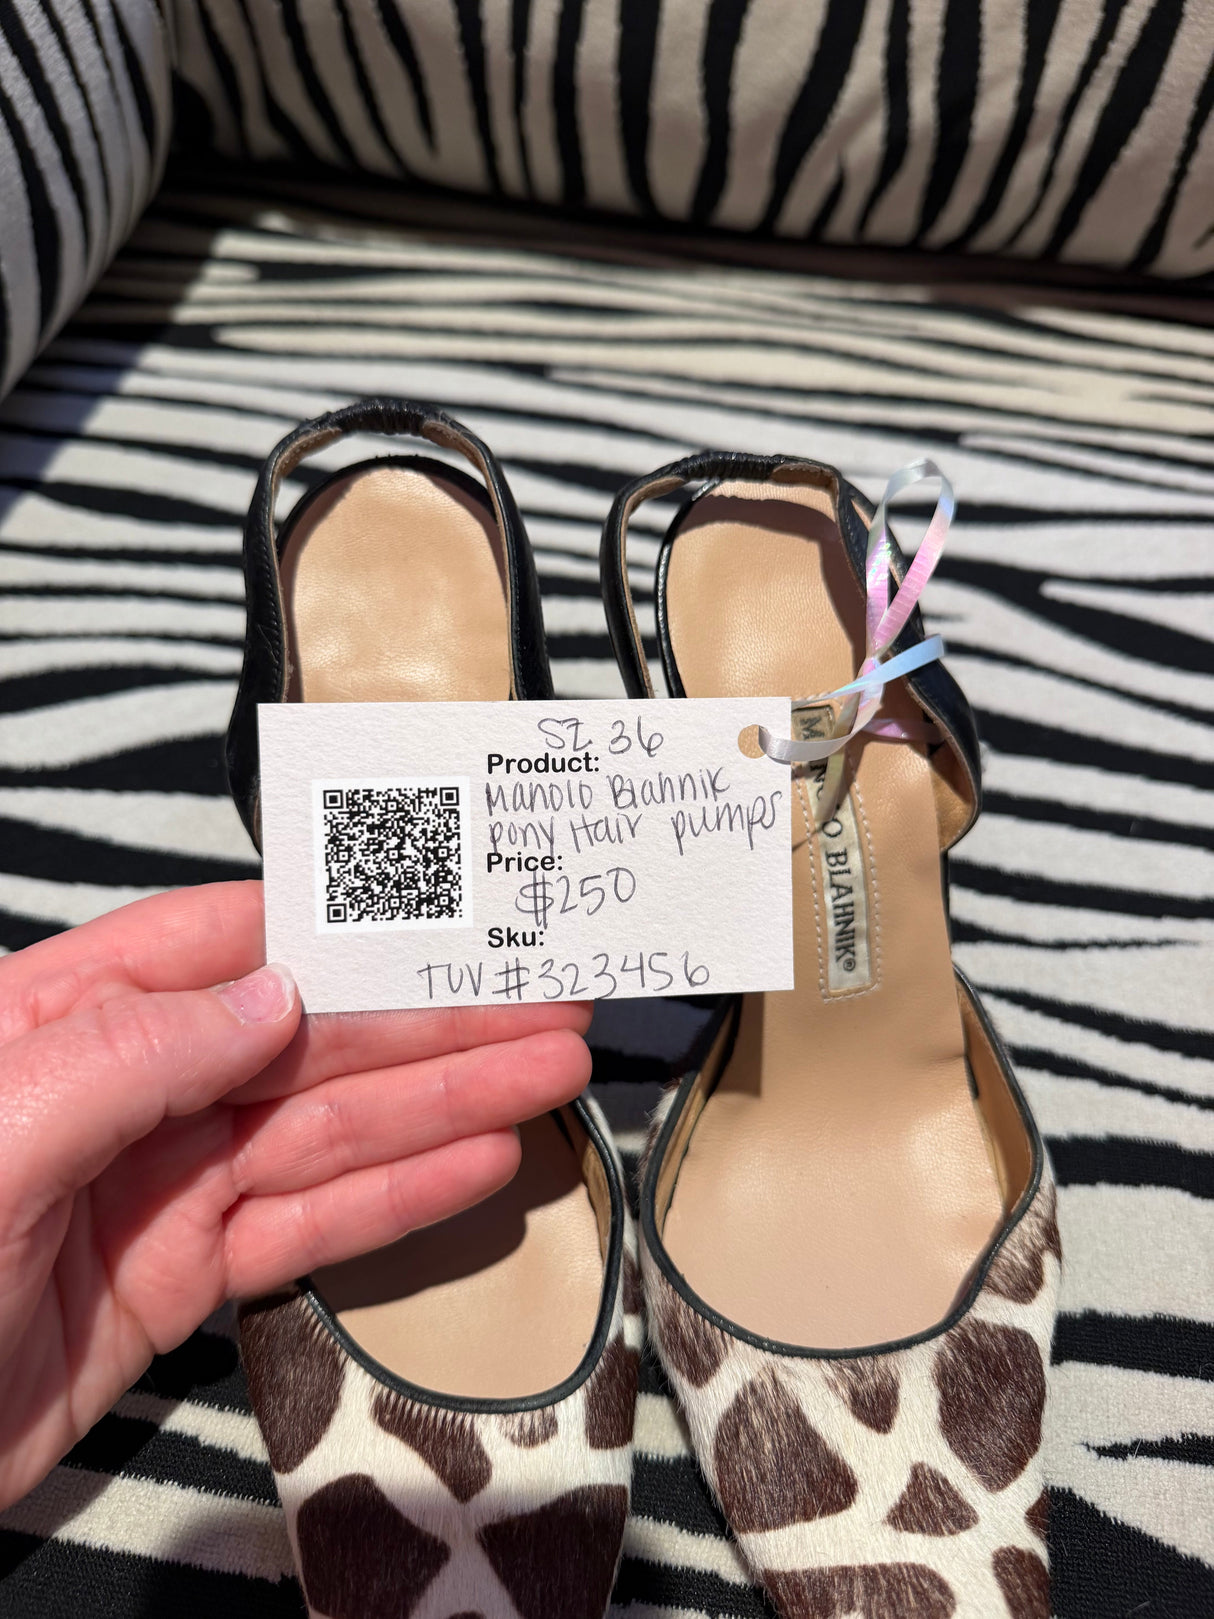 SZ 36
Product:
Manolo Blahnik
Pony Hair pumps
Price:
$250
Sku:
TUV #323456
MANOLO BLAHNIK®